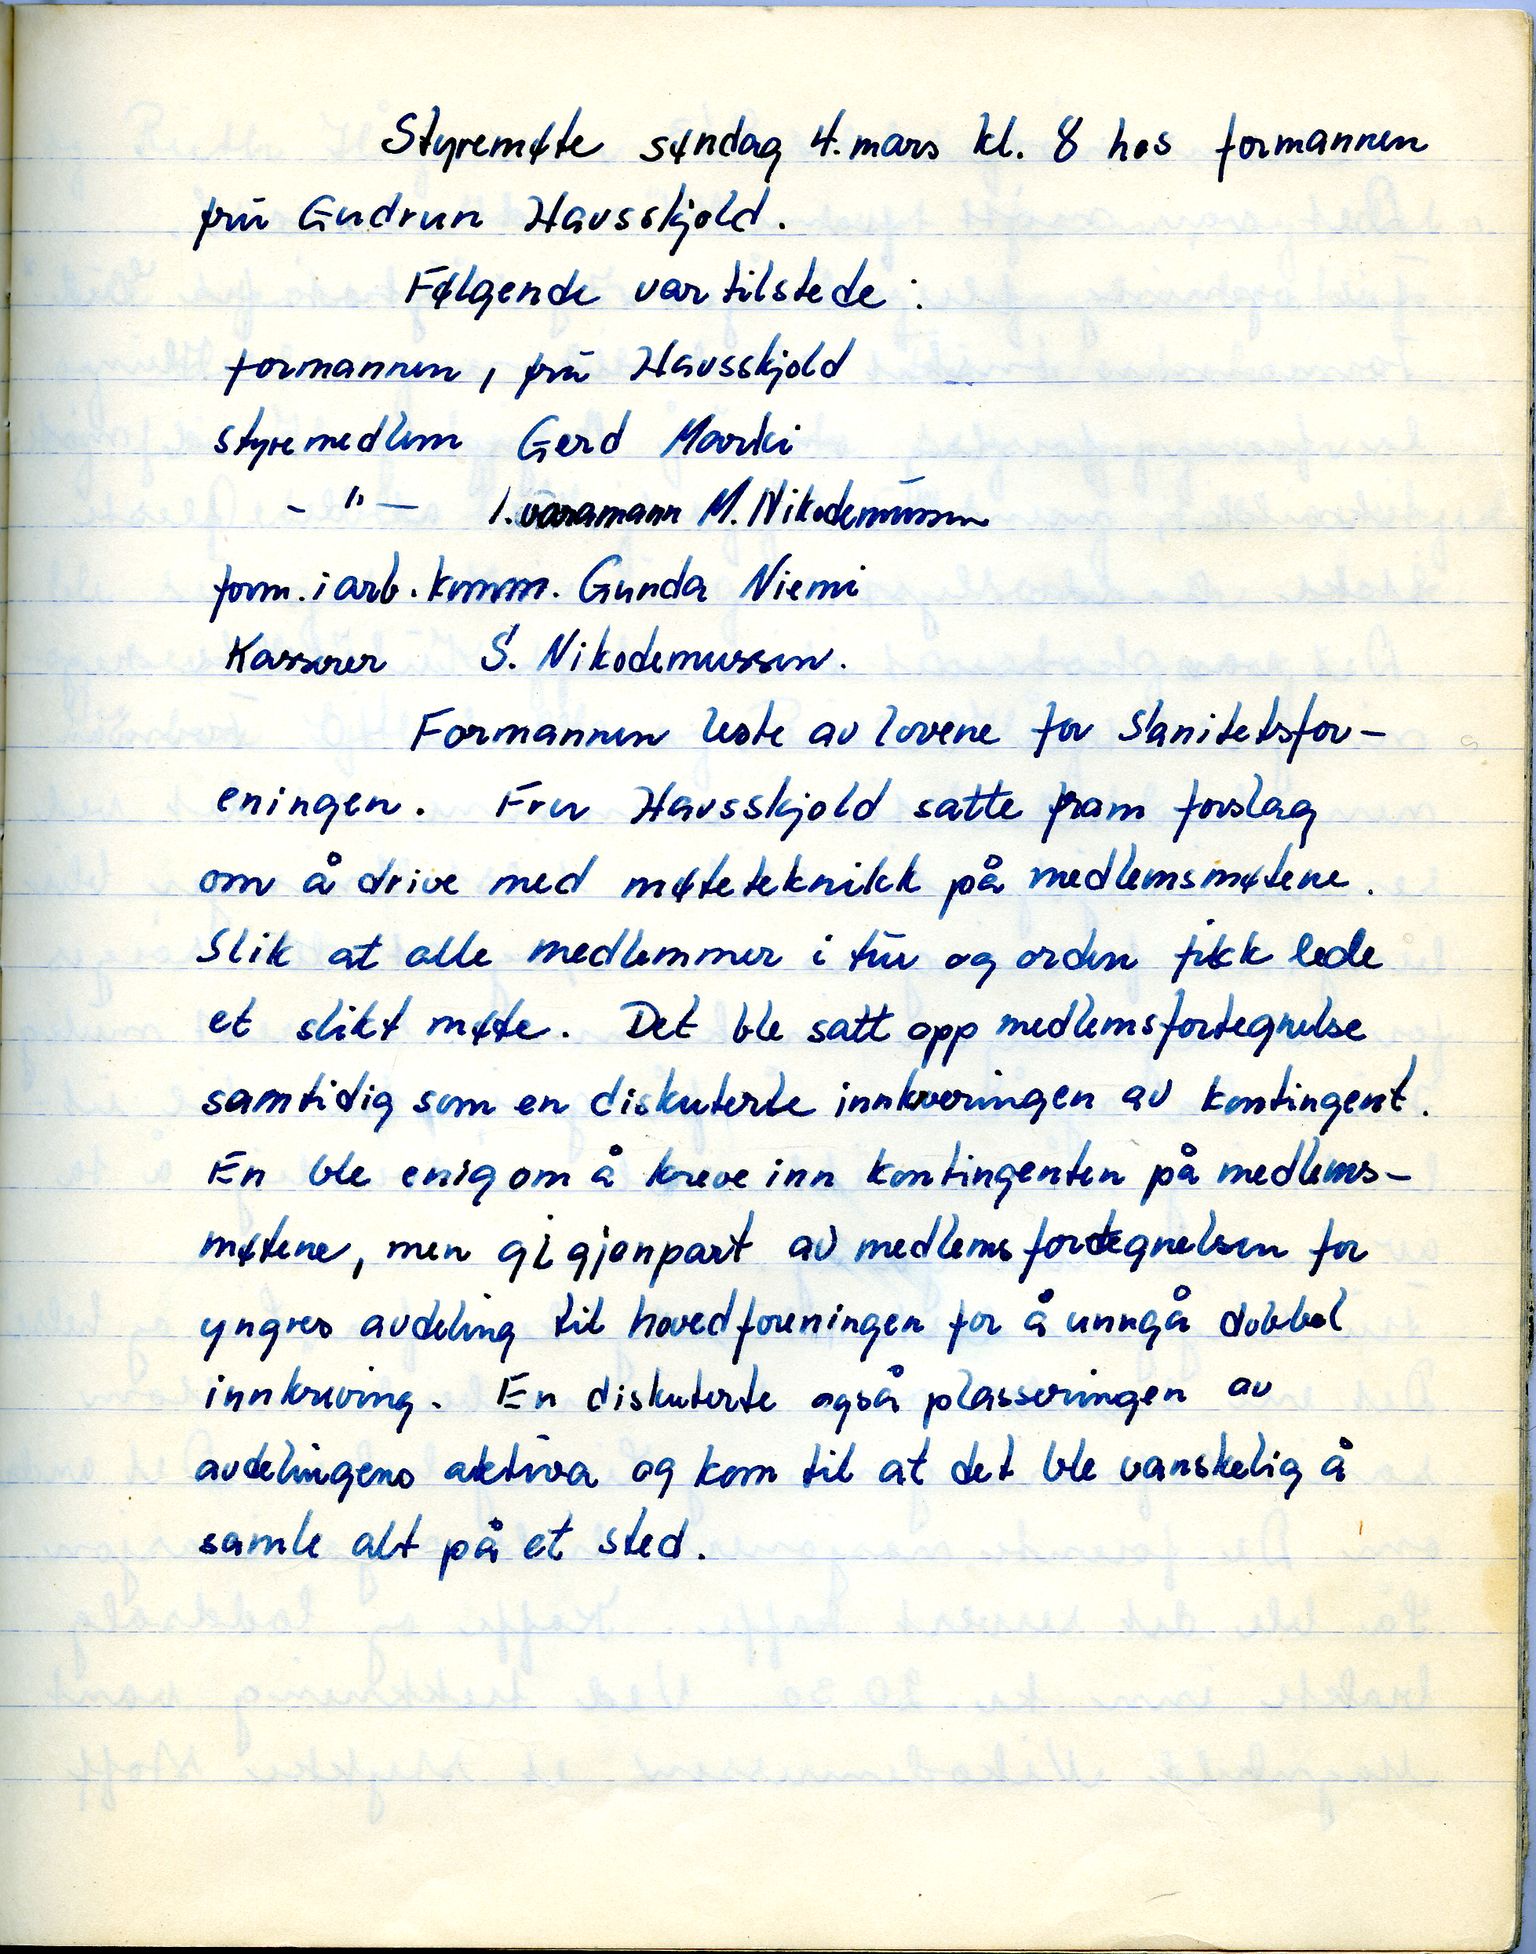 Styremøte søndag 4. mars kl. 8 hos formannen
frü Gudrun Havsskjold.
Følgende var tilstede:
formannen, frü Havsskjold
styremedlem Gerd Marki
- " - 1. varamann M. Nikodemüssen
form. i arb. komm. Gunda Niemi
Kasserer S. Nikodemussen.
Formannen leste av lovene for Sanitetsfor-
eningen. Fru Havsskjold satte fram forslag
om å drive med møteteknikk på medlemsmøtene.
Slik at alle medlemmer i tür og orden fikk lede
et slikt møte. Det ble satt opp medlemsfortegnelse
samtidig som en diskuterte innkreveringen av kontingent.
En ble enig om å kreve inn kontingenten på medlems-
møtene, men gi gjenpart av medlemsfortegnelsen for
yngres avdeling til hovedforeningen for å unngå dobbel
innkreving. En diskuterte også plasseringen av
avdelingens aktiva og kom til at det ble vanskelig å
samle alt på et sted.